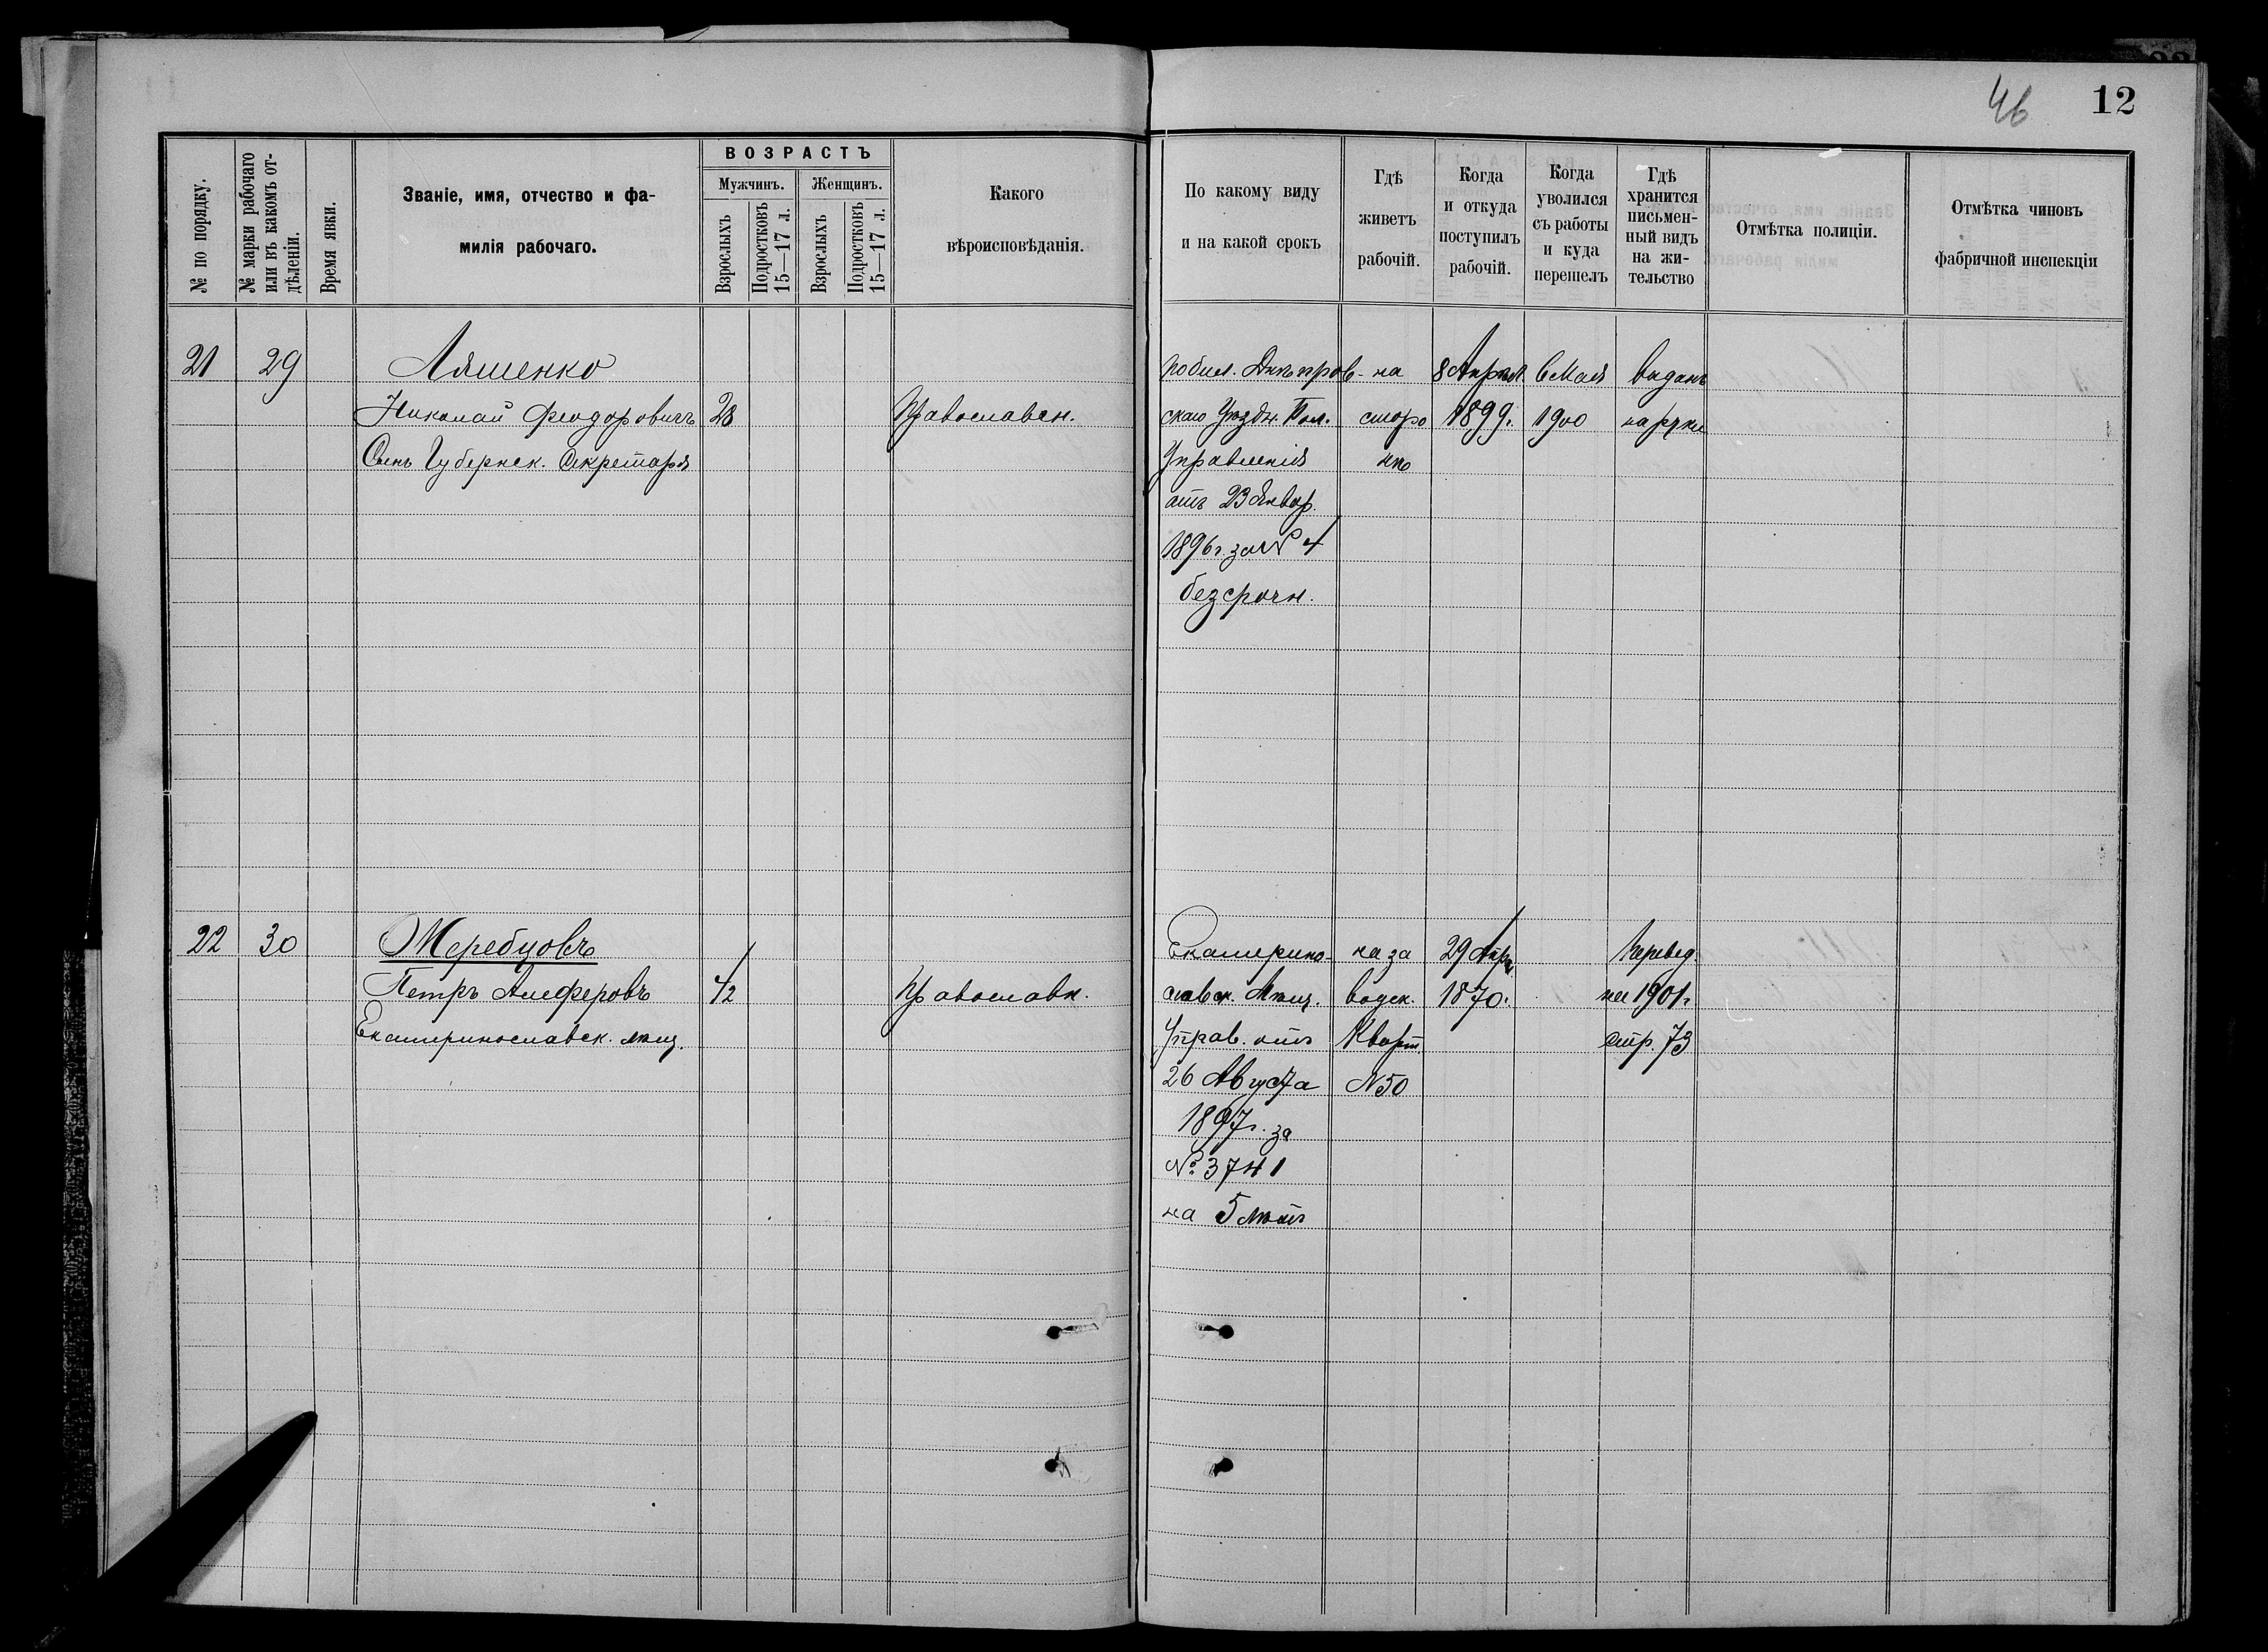 46 12
№ по порядку.
№ марки рабочаго
или въ какомъ от-
дѣленіи.
Время явки.
Званіе, имя, отчество и фа-
милія рабочаго.
ВОЗРАСТЪ
Мужчинъ.
Женщинъ.
Взрослыхъ
Подростковъ
15—17 л.
Взрослыхъ
Подростковъ
15—17 л.
Какого
вѣроисповѣданія.
По какому виду
и на какой срокъ
Гдѣ
живетъ
рабочій.
Когда
и откуда
поступилъ
рабочій.
Когда
уволился
съ работы
и куда
перешелъ
Гдѣ
хранится
письмен-
ный видъ
на жи-
тельство
Отмѣтка полиціи.
Отмѣтка чиновъ
фабричной инспекціи
21 29
Ляшенко
Николай Феодоровичъ
Сынъ Губернск. Секретаря
28
Православн.
по бил. Днѣпров-
скаго Уѣздн. Пол.
Управленія
отъ 23 Январ.
1896 г. за № 4
безсрочн.
на
сторо
нѣ
8 Апрѣл.
1899 г.
6 Мая
1900
выданъ
на руки
22 30
Жеребцовъ
Петръ Алферовъ
Екатеринославск. мѣщ.
42
Православн.
Екатерино-
славск. Мѣщ.
Управ. отъ
26 Августа
1897 г. за
№ 3741
на 5 лѣтъ
на за
водск.
Кварт.
N 50
29 Апр.
1870 г.
Перевед.
на 1901 г.
стр. 73